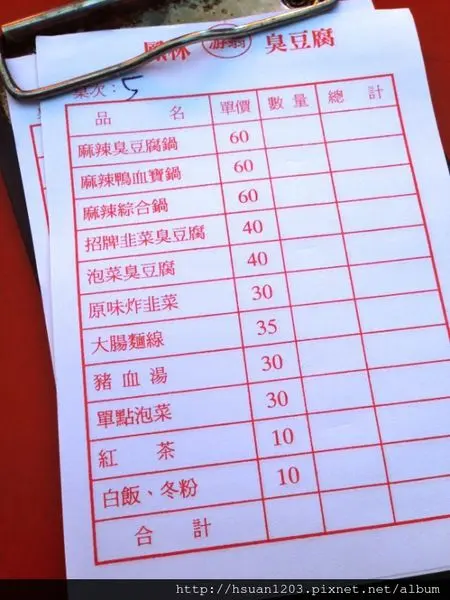 臭豆腐
桌次：5
品名 單價 數量 總計
麻辣臭豆腐鍋 60
麻辣鴨血寶鍋 60
麻辣綜合鍋 60
招牌韭菜臭豆腐 40
泡菜臭豆腐 40
原味炸韭菜 30
大腸麵線 35
豬血湯 30
單點泡菜 30
紅茶 10
白飯、冬粉 10
合計
http://hsuan1203.pixnet.net/album